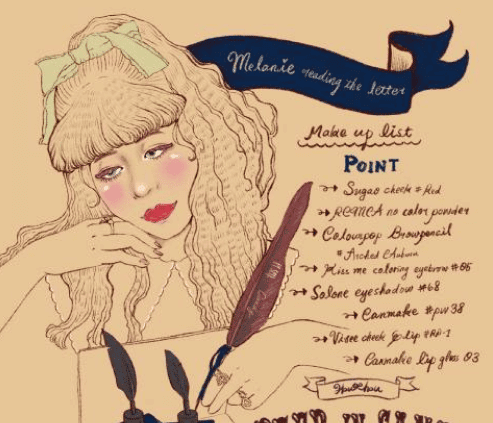 Melanie reading the letter
Make up list
POINT
Sugao cheek #Red
RCMCA no color powder
Colourpop Browpencil
#Arched Auburn
Kiss me coloring eyebrow #06
Solone eyeshadow #68
Canmake #pw38
Visee cheek & lip #RD-1
Canmake lip gloss 03